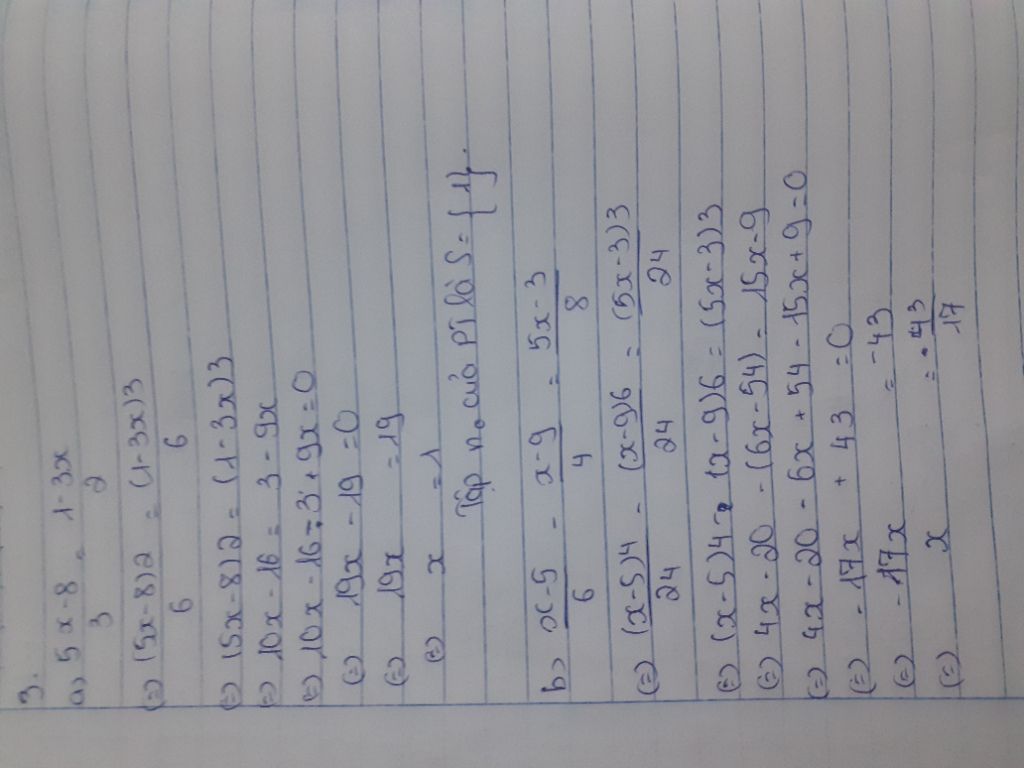 3.
a) 5x-8 = 1-3x
3 2
(=) (5x-8)2 = (1-3x)3
6 6
(=) (5x-8)2 = (1-3x)3
(=) 10x-16 = 3-9x
(=) 10x-16-3+9x=0
(=) 19x-19=0
(=) 19x=19
(=) x=1
Tập no của PT là S={1}.
b) x-5 - x-9 = 5x-3
6 4 8
(=) (x-5)4 - (x-9)6 = (5x-3)3
24 24 24
(=) (x-5)4 - (x-9)6 = (5x-3)3
(=) 4x-20 - (6x-54) = 15x-9
(=) 4x-20 - 6x+54 - 15x+9=0
(=) -17x + 43 =0
(=) -17x = -43
(=) x = 43
17